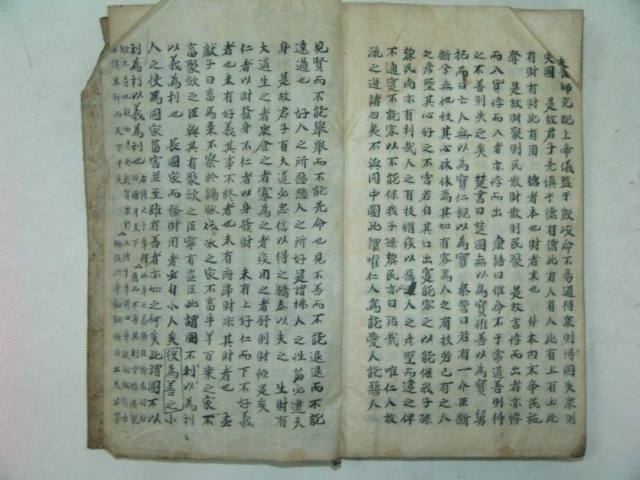 喪師克配上帝儀監于殷峻命不易道得衆則得國失衆則
失國 是故君子先愼乎德有德此有人有人此有土有土此
有財有財此有用 德者本也財者末也 外本內末爭民施
奪 是故財聚則民散財散則民聚 是故言悖而出者亦悖
而入貨悖而入者亦悖而出 康誥曰惟命不于常道善則得
之不善則失之矣 楚書曰楚國無以爲寶惟善以爲寶 舅
犯曰亡人無以爲寶仁親以爲寶 秦誓曰若有一介臣斷
斷兮無他技其心休休焉其如有容焉人之有技若己有之人
之彦聖其心好之不啻若自其口出寔能容之以能保我子孫
黎民尙亦有利哉人之有技媢疾以惡之人之彦聖而違之俾
不通寔不能容以不能保我子孫黎民亦曰殆哉 唯仁人放
流之迸諸四夷不與同中國此謂唯仁人爲能愛人能惡人
見賢而不能擧擧而不能先命也見不善而不能退退而不能
遠過也 好人之所惡惡人之所好是謂拂人之性菑必逮夫
身 是故君子有大道必忠信以得之驕泰以失之 生財有
大道生之者衆食之者寡爲之者疾用之者舒則財恒足矣
仁者以財發身不仁者以身發財 未有上好仁而下不好義
者也未有好義其事不終者也未有府庫財非其財者也 孟
獻子曰畜馬乘不察於鷄豚伐氷之家不畜牛羊百乘之家不
畜聚斂之臣與其有聚斂之臣寧有盜臣此謂國不以利爲利
以義爲利也 長國家而務財用者必自小人矣彼爲善之小
人之使爲國家菑害並至雖有善者亦如之何矣此謂國不以
利爲利以義爲利也 右傳之十章釋治國平天下